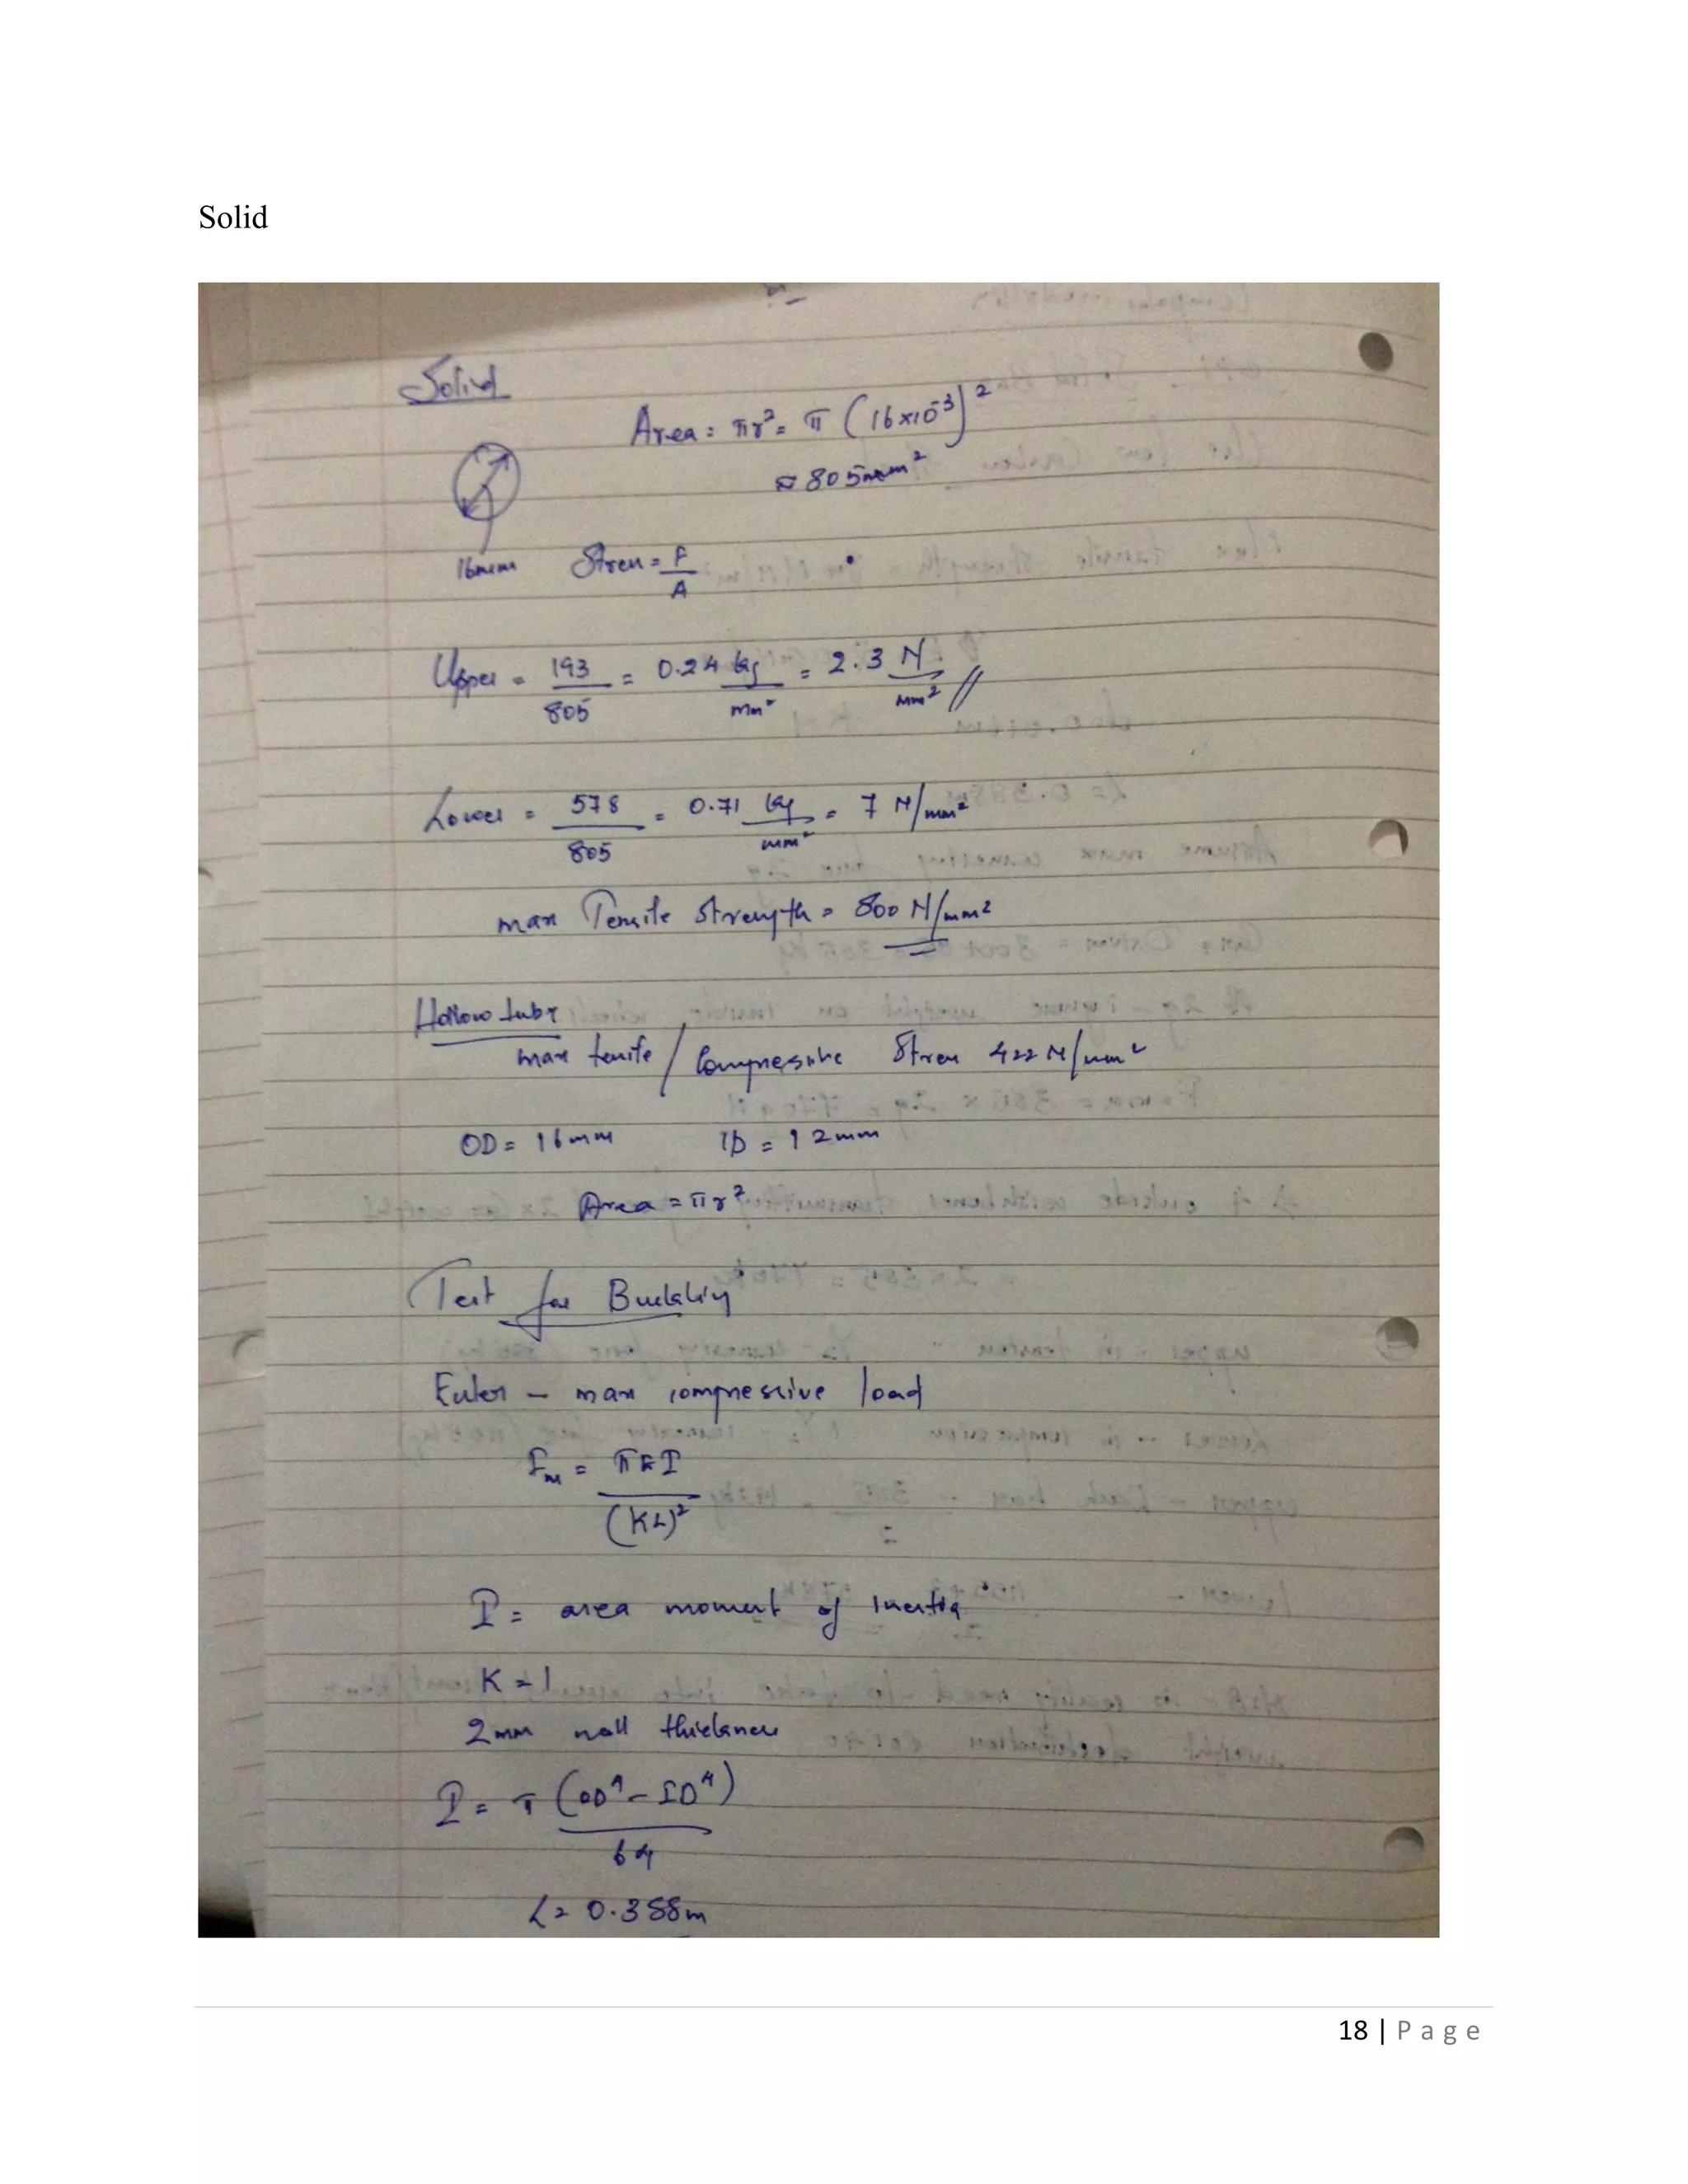 Solid
Solid
Area = πr² = π (16×10⁻³)²
≈ 805mm²
16mm Stress = F/A
Upper = 193/805 = 0.24 kg/mm² = 2.3 N/mm²
Lower = 578/805 = 0.71 kg/mm² = 7 N/mm²
max Tensile Strength = 800 N/mm²
Hollow tube
max tensile / Compressive Stress 422 N/mm²
OD = 16mm ID = 12mm
Area = πr²
Test for Buckling
Euler – max compressive load
Fm = πEI/(KL)²
I = area moment of Inertia
K = 1
2mm wall thickness
I = π (OD⁴ – ID⁴)/64
L = 0.388m
18 | Page